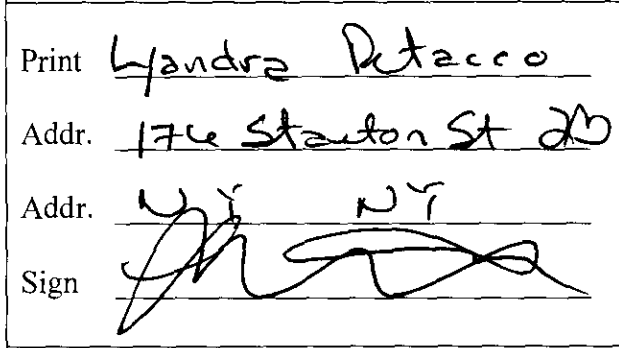 Print Lyandra Retacco
Addr. 174 Stanton St 2B
Addr. NY NY
Sign